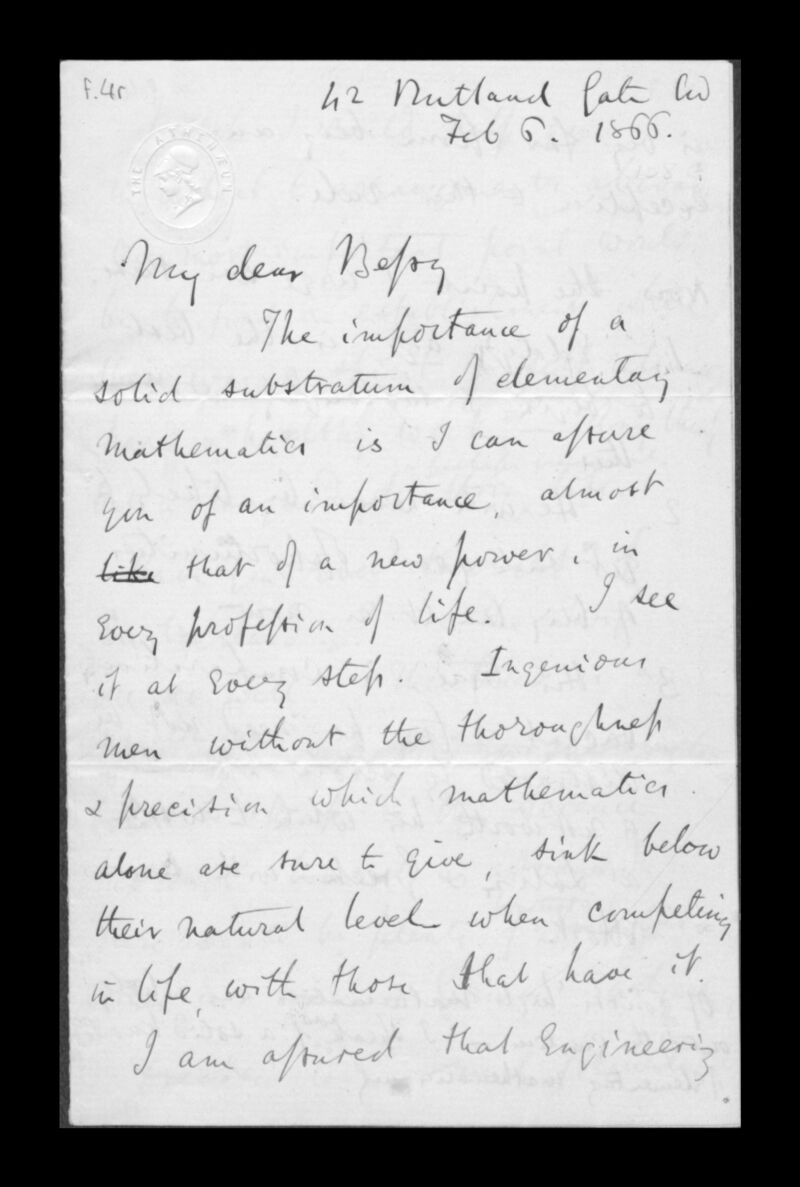 f.4r
42 Rutland Gate
Feb 6. 1866.
THE ATHENÆUM
My dear Bessy
The importance of a
solid substratum of elementary
mathematics is I can assure
you of an importance, almost
like that of a new power, in
every profession of life. I see
it at every step. Ingenious
men without the thoroughness
& precision which mathematics
alone are sure to give, sink below
their natural level when competing
in life, with those that have it.
I am assured that Engineering